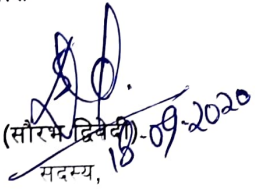 (सौरभ द्विवेदी)
18-09-2020
सदस्य,